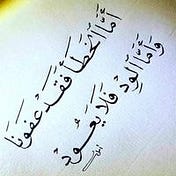 أَمَّا الخَطَأ فَقَدْ عَفَوْنَا
وَأَمَّا الوِد فَلَا يَعُودْ